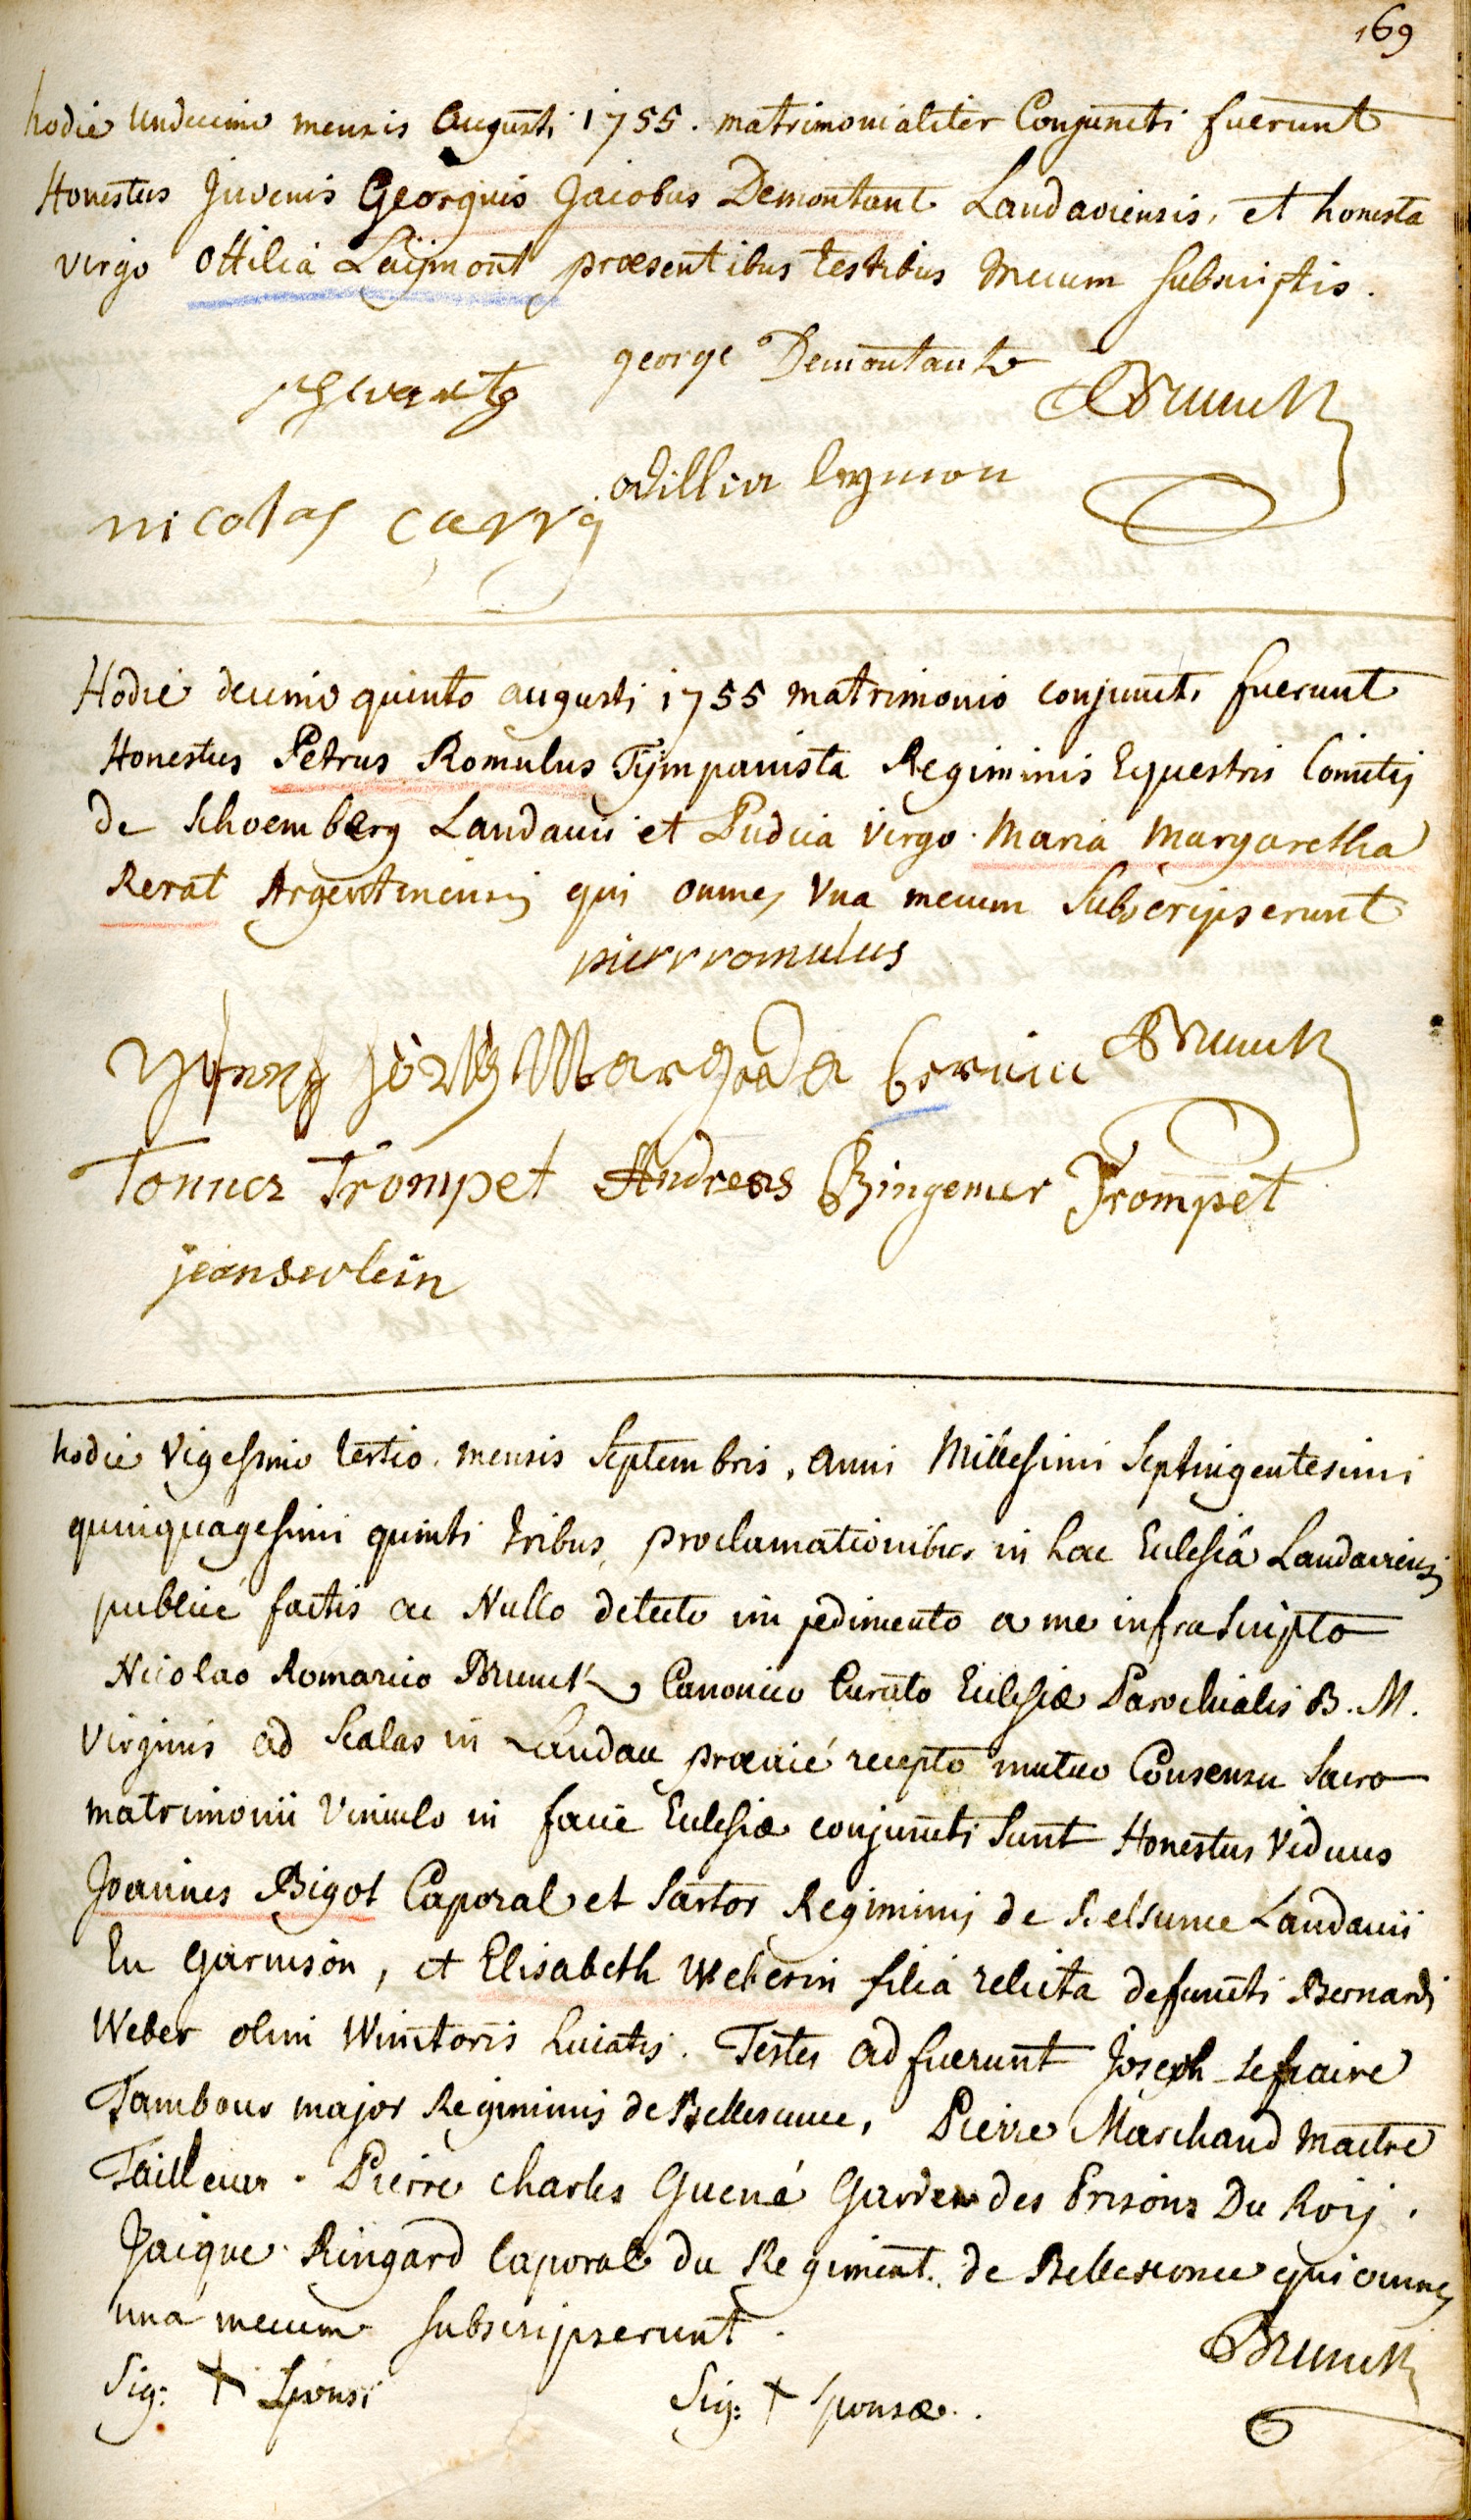 169
hodie undecimo mensis Augusti 1755. matrimonialiter Conjuncti fuerunt
Honestus Juvenis Georgius Jacobus Demontant Landaviensis, et honesta
virgo Ottilia Leijmont praesentibus testibus mecum subscriptis.
george Demontant
schwartz
Brunck
odillia leymon
nicolas carry
Hodie decimo quinto augusti 1755 matrimonio conjuncti fuerunt
Honestus Petrus Romulus Tijmpanista Regiminis Equestris Comitis
de Schoemberg Landavii et Pudica virgo Maria Margaretha
Rerat Argentinensis qui omnes Una mecum Subscripserunt
pierr romulus
Brunck
Tonner Trompet Andreas Bingemer Trompet
hodie Vigesimo tertio mensis Septembris, anni Millesimi Septingentesimi
quinquagesimi quinti tribus proclamationibus in hac Eclesiâ Landaviensi
publicé factis ac Nullo detecto impedimento a me infrascripto
Nicolao Romarico Brunck Canonico Curato Eclesiæ Parochialis B. M.
Virginis ad Scalas in Landau praevié recepto mutuo Consensu Sacro
matrimonii Vinculo in facie Eclesiæ conjuncti Sunt Honestus Viduus
Joannes Bigot Caporal et Sartor Regiminis de Landavii
En Garnison, et Elisabeth Weberin filia relicta defuncti Bernardi
Weber olim Winitoris huiatis. Testes adfuerunt Joseph Lefraire
Tambour major Regiminis de Bellesunce, Pierre Marchand maitre
Tailleur. Pierre Charles Guené Garde des Prisons Du Roij.
Jacque Ringard Caporal du Regiment de Bellesunce qui omnes
una mecum subscripserunt.
Brunck
Sig: + Sponsi Sig: + Sponsæ.